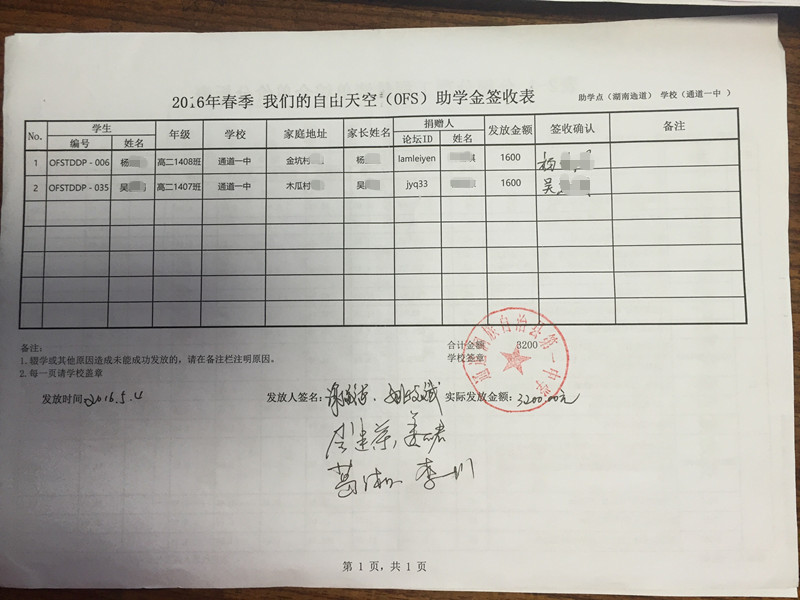 2016年春季 我们的自由天空（OFS）助学金签收表
助学点（湖南通道） 学校（通道一中 ）
No. 学生 年级 学校 家庭地址 家长姓名 捐赠人 发放金额 签收确认 备注
编号 姓名 论坛ID 姓名
1 OFSTDDP - 006 杨 高二1408班 通道一中 金坑村 杨 lamleiyen 1600 杨
2 OFSTDDP - 035 吴 高二1407班 通道一中 木瓜村 吴 jyq33 1600 吴
备注：
1.辍学或其他原因造成未能成功发放的，请在备注栏注明原因。
2.每一页请学校盖章
合计金额 3200
学校签章
族自治县第一中学
发放时间：2016.5.4 发放人签名： 实际发放金额：3200.00元
李川
第 1 页，共 1 页